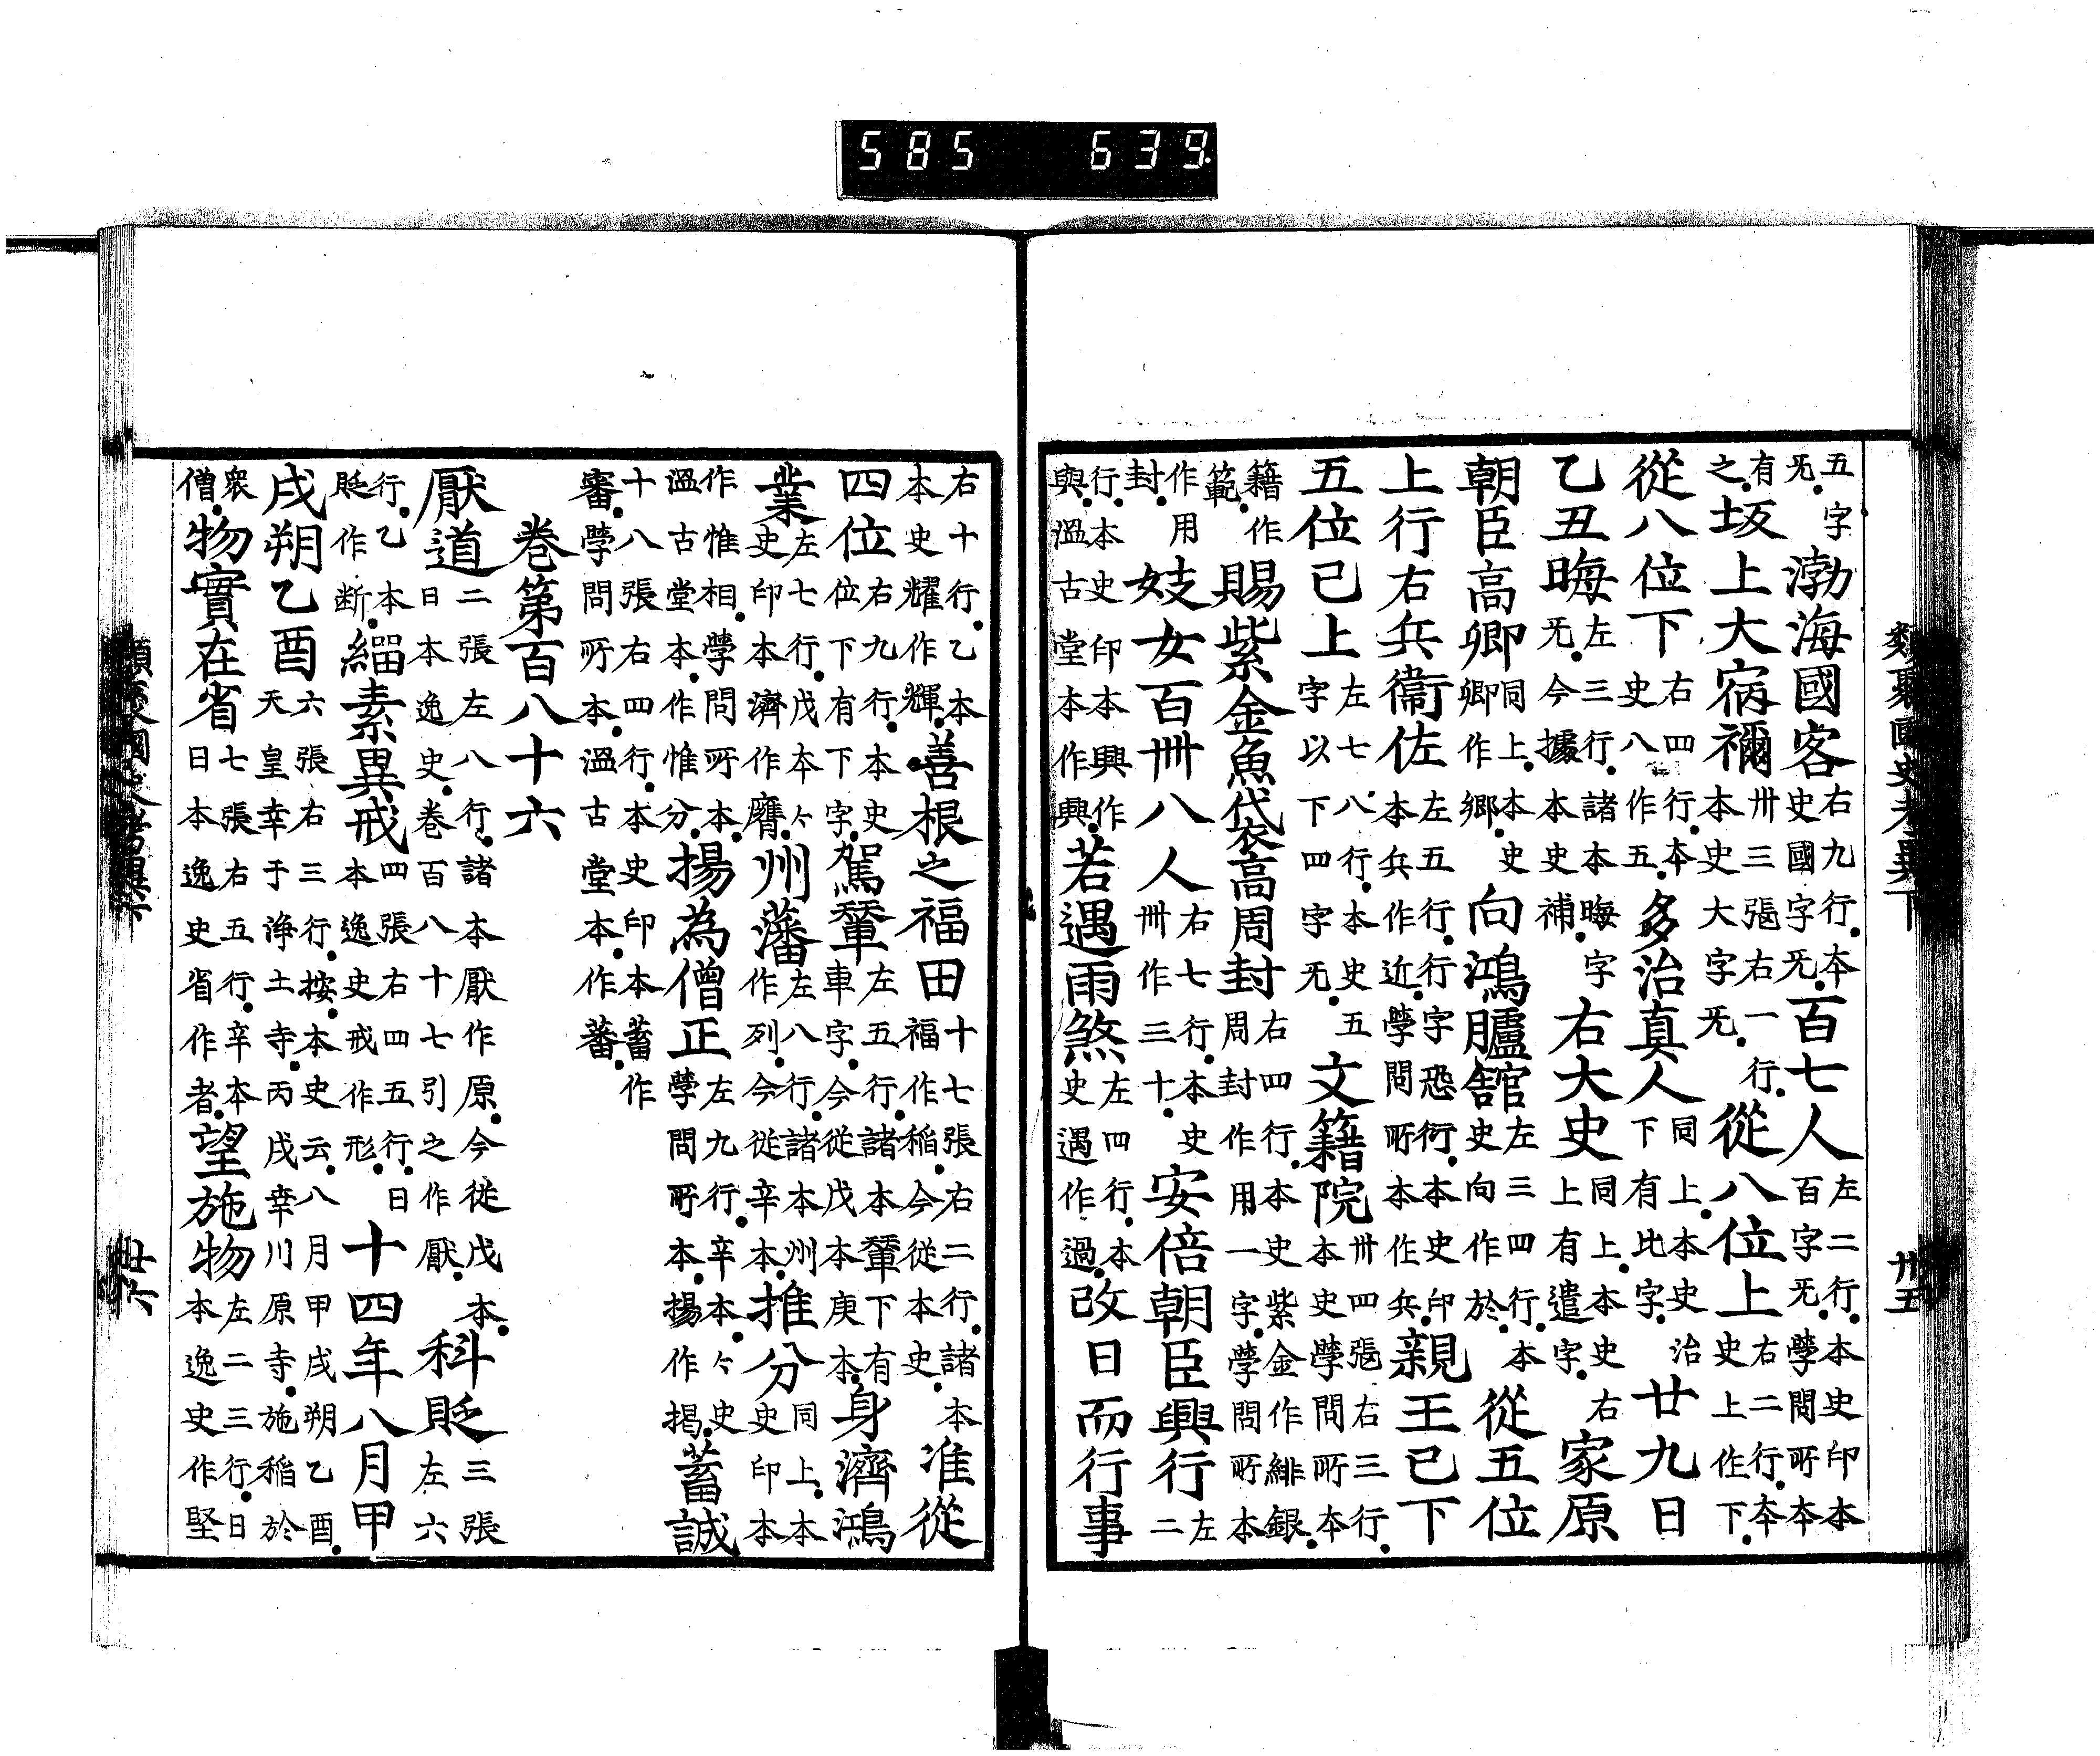 585 639
類聚國史考異下 卅五
五字旡.渤海國客右九行.本史國字旡.百七人左二行.本史印本百字旡.學問所本
有之.坂上大宿禰卅三張右一行.本史大字旡.從八位上右二行.本史上作下.
從八位下右四行.本史八作五.多治真人同上.本史治下有比字.廿九日
乙丑晦左三行.諸本晦字旡.今據本史補.右大史同上.本史右上有遣字.家原
朝臣高卿同上.本史卿作郷.向鴻臚舘左三四行.本史向作於.從五位
上行右兵衞佐左五行.行字恐衍.本史印本兵作近.學問所本作兵.親王已下
五位已上左七八行.本史五字以下四字旡.文籍院卅四張右三行.本史學問所本
籍作範.賜紫金魚袋高周封右四行.本史紫金作緋銀.周封作用一字.學問所本
作用封.妓女百卌八人右七行.本史卌作三十.安倍朝臣興行左二
行.本史印本興作興.溫古堂本作興.若遇雨煞左四行.本史遇作過.改日而行事
右十行.乙本本史耀作輝.善根之福田十七張右二行.諸本福作稲.今從本史.准從
四位右九行.本史位下有下字.駕輦左五行.諸本輦下有車字.今從戊本庚本.身濟鴻
業左七行.戊本々史印本濟作膺.州藩左八行.諸本州作列.今從辛本.推分同上.本史印本
作惟相.學問所本.溫古堂本.作惟分.揚為僧正左九行.辛本.々史學問所本.揚作掲.蓄誠
十八張右四行.本史印本蓄作審.學問所本.溫古堂本.作蕃.
巻第百八十六
厭道二張左八行.諸本厭作原.今從戊本.日本逸史.巻百八十七引之作厭.科貶三張左六
行.乙本貶作断.緇素異戒四張右四五行.日本逸史戒作形.十四年八月甲
戌朔乙酉六張右三行.按.本史云.八月甲戌朔乙酉.天皇幸于浄土寺.丙戌幸川原寺.施稲於
衆僧.物實在省七張右五行.辛本日本逸史省作者.望施物左二三行.日本逸史作堅
類聚國史考異下 卅六